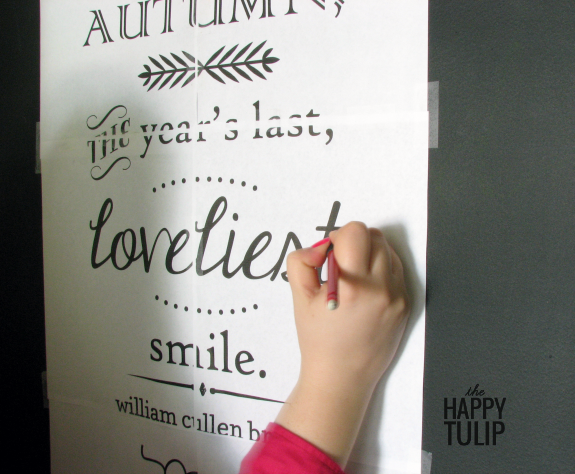 AUTUMN,
the year's last,
loveliest
smile.
william cullen
the
HAPPY
TULIP